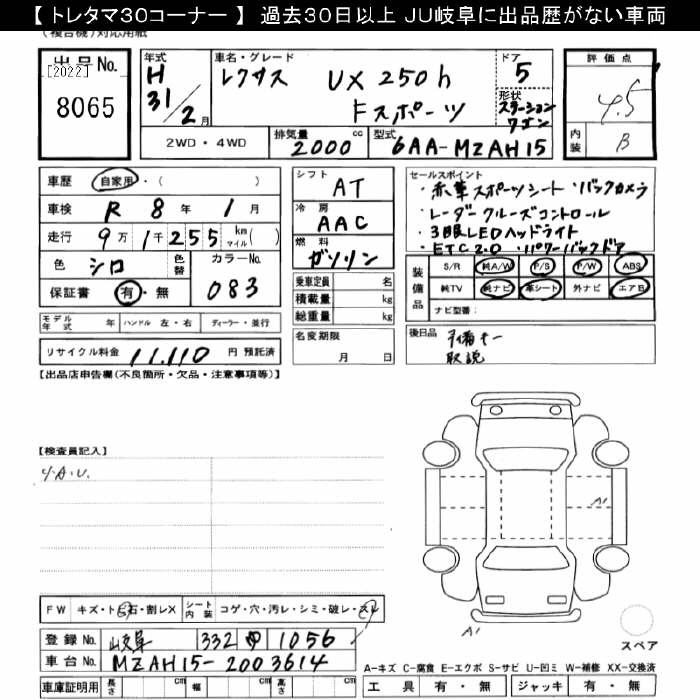 【トレタマ30コーナー】 過去30日以上 JU岐阜に出品歴がない車両
(複合機)対応用紙
出品No.
[2022]
8065
年式
H
31/2月
車名・グレード
レクサス UX 250h
Fスポーツ
ドア
5
形状
ステーション
ワゴン
評価点
4.5
内装
B
2WD・4WD
排気量
2000 cc
型式
6AA-MZAH15
車歴 自家用・( )
車検 R 8年 1月
走行 9万1千255 km マイル( )
色 シロ
色替
カラーNo.
083
保証書 有・無
シフト
AT
冷房
AAC
燃料
ガソリン
乗車定員 名
積載量 kg
総重量 kg
セールスポイント
・赤革スポーツシート ・バックカメラ
・レーダークルーズコントロール
・3眼LEDヘッドライト
・ETC2.0 ・パワーバックドア
装備品
S/R 純A/W P/S P/W ABS
純TV 純ナビ 革シート 外ナビ エアB
ナビ型番:
モデル年式 年 ハンドル 左・右 ディーラー・並行
名変期限
月 日
後日品
予備キー
取説
リサイクル料金 11,110 円 預託済
【出品店申告欄(不良箇所・欠品・注意事項等)】
【検査員記入】
Y.A.U.
A1
A1
スペア
FW キズ・トビ石・割レX
シート内装 コゲ・穴・汚レ・シミ・破レ・スレ
登録No. 岐阜 332 1056
車台No. MZAH15-2003614
車庫証明用 長さ cm 幅 cm 高さ cm
A-キズ C-腐食 E-エクボ S-サビ U-凹ミ W-補修 XX-交換済
工具 有・無 ジャッキ 有・無